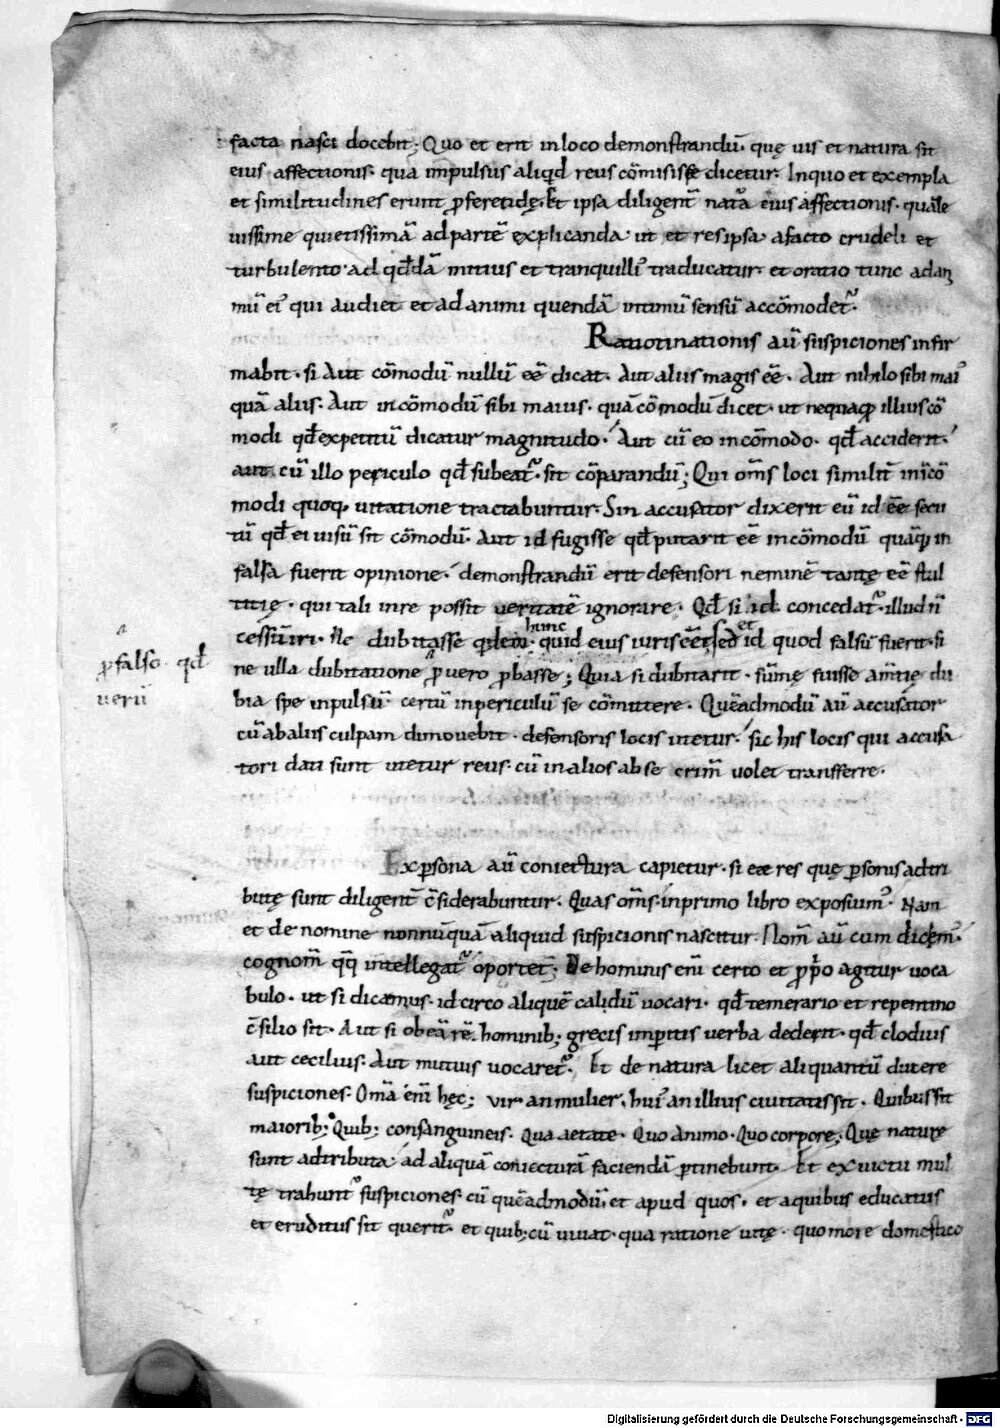 facta nasci docebit; Quo et erit in loco demonstrandū· quę uis et natura sit
eius affectionis· qua impulsus aliq̇d reus cōmisisse dicetur· In quo et exempla
et similitudines erunt pferetidę· Et ipsa diligent̄ nat̄a eius affectionis· quāle
uissime quietissimā ad partē explicanda· ut et res ipsa a facto crudeli et
turbulento· ad qd̄dā mitius et tranquilli' traducatur· et oratio tunc ad an
mū ei' qui audiet et ad animi quendā intimū sensū accōmodet'·
Ratiotinationis aū suspiciones infir
mabit· si Aut cōmodū nullū eē dicat· Aut aliis magis eē· Aut nihilo sibi mai'
quā aliis· Aut incōmodū sibi maius· quā cōmodū dicet· ut nequaq̄ illius cō
modi qd̄ expetitū dicatur magnitudo· Aut cū eo incōmodo· qd̄ acciderit·
aut cū illo periculo qd̄ subeat'· sit cōparandū; Qui om̄s loci similit̄ in icō
modi quoq; uitatione tractabuntur· Sin accusator dixerit eū id eē secu
tū qd̄ ei uisū sit cōmodū· Aut id fugisse qd̄ putarit eē incōmodū quāq̄ in
falsa fuerit opinione· demonstrandū erit defensori neminē tantę eē stul
titię· qui tali in re possit ueritatē ignorare· Qd̄ si id concedat'· illud n̄
cessū iri· Ne dubitasse quidem· hunc quid eius iuris eēt, sed et id quod falsū fuerit· si
ne ulla dubitatione p uero pbasse; Quia si dubitarit· sūmę fuisse am̄tię du
p falso· qd̄
uerū
bia spe inpulsū certū in periculū se cōmittere· Quēadmodū aū accusator
cū ab aliis culpam dimouebit· defensoris locis utetur· sic his locis qui accusa
tori dati sunt utetur reus· cū in alios ab se crim̄ uolet transferre·
Ex psona aū coniectura capietur· si eae res quę psonis adtri
butę sunt diligent̄ c̄siderabuntur· Quas om̄s in primo libro exposuim'· Nam
et de nomine nonnūquā aliquid suspicionis nascitur· Nom̄ aū cum dicem'·
cognom̄ qq̄ intellegat' oportet· De hominis eni certo et pp̄o agitur uoca
bulo· ut si dicamus· idcirco aliquē calidū uocari· qd̄ temerario et repentino
c̄silio sit· Aut si ob eā rē· hominib; grecis imperitus uerba dederit· qd̄ clodius
aut cecilius· Aut mutius uocaret'· Et de natura licet aliquantū ducere
suspiciones· Om̄a eni hęc; uir an mulier, hui' an illius ciuitatis sit· Quibus sit
maiorib; Quib; consanguineis· Qua aetate· Quo animo· Quo corpore; Quę naturę
sunt adtributa· ad aliquā coniecturā faciendā ptinebunt· Et ex uictu mul
tę trahunt' suspiciones· cū quēadmodū, et apud quos· et a quibus educatus
et eruditus sit querit'· et quib; cū uiuat· qua ratione uitę· quo more domestico
Digitalisierung gefördert durch die Deutsche Forschungsgemeinschaft - DFG